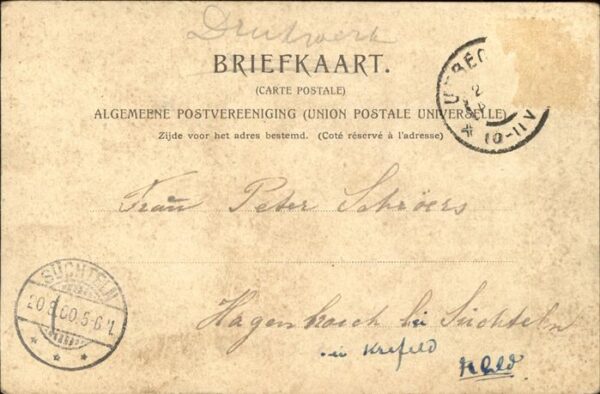 Drukwerk
BRIEFKAART.
(CARTE POSTALE)
ALGEMEENE POSTVEREENIGING (UNION POSTALE UNIVERSELLE)
Zijde voor het adres bestemd. (Coté réservé à l'adresse)
UTREC
2
10-11V
Frau Peter Schröers
SÜCHTELN
20.8.00.5-6N.
Hagenbroich bei Süchteln
bei Krefeld
Rhld